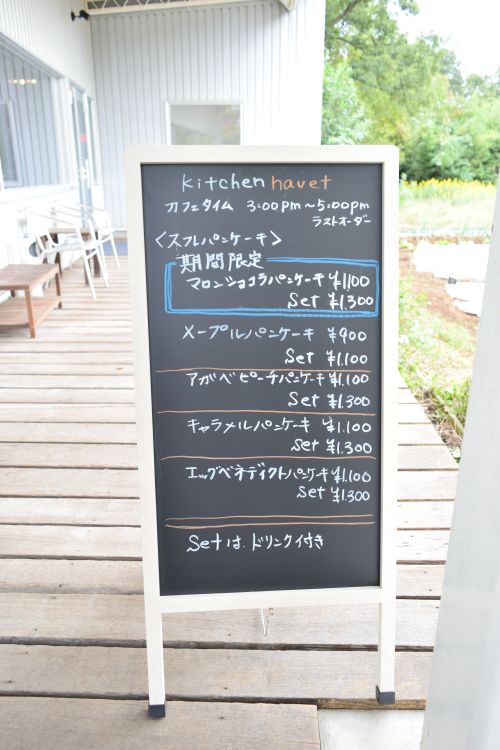 kitchen havet
カフェタイム 3:00pm〜5:00pm
ラストオーダー
〈スフレパンケーキ〉
期間限定
マロンショコラパンケーキ ¥1,100
Set ¥1,300
メープルパンケーキ ¥900
Set ¥1,100
アガベピーチパンケーキ ¥1,100
Set ¥1,300
キャラメルパンケーキ ¥1,100
Set ¥1,300
エッグベネディクトパンケーキ ¥1,100
Set ¥1,300
Setは、ドリンク付き